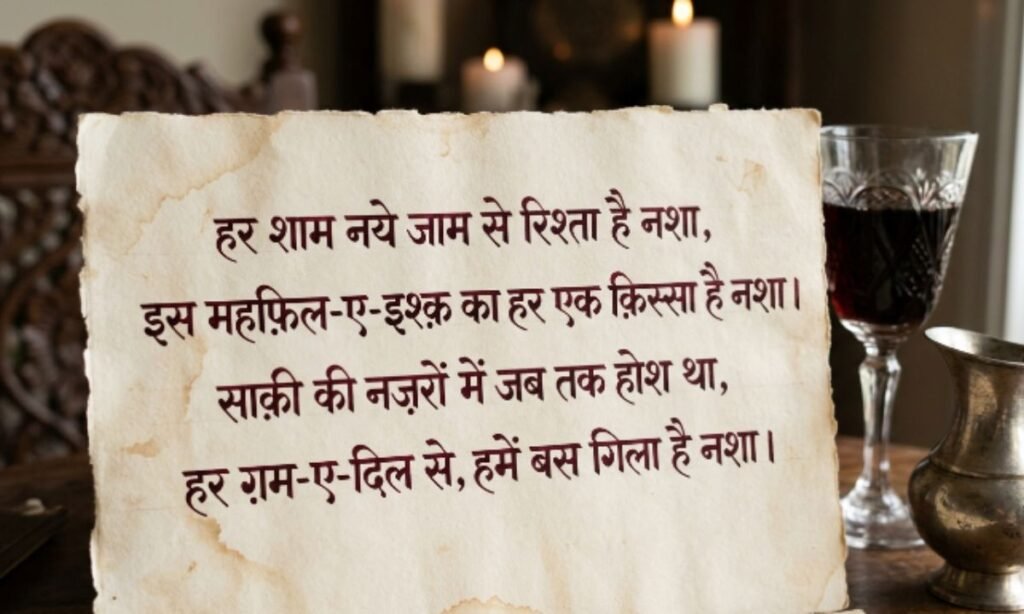 हर शाम नये जाम से रिश्ता है नशा,
इस महफ़िल-ए-इश्क़ का हर एक क़िस्सा है नशा।
साक़ी की नज़रों में जब तक होश था,
हर ग़म-ए-दिल से, हमें बस गिला है नशा।